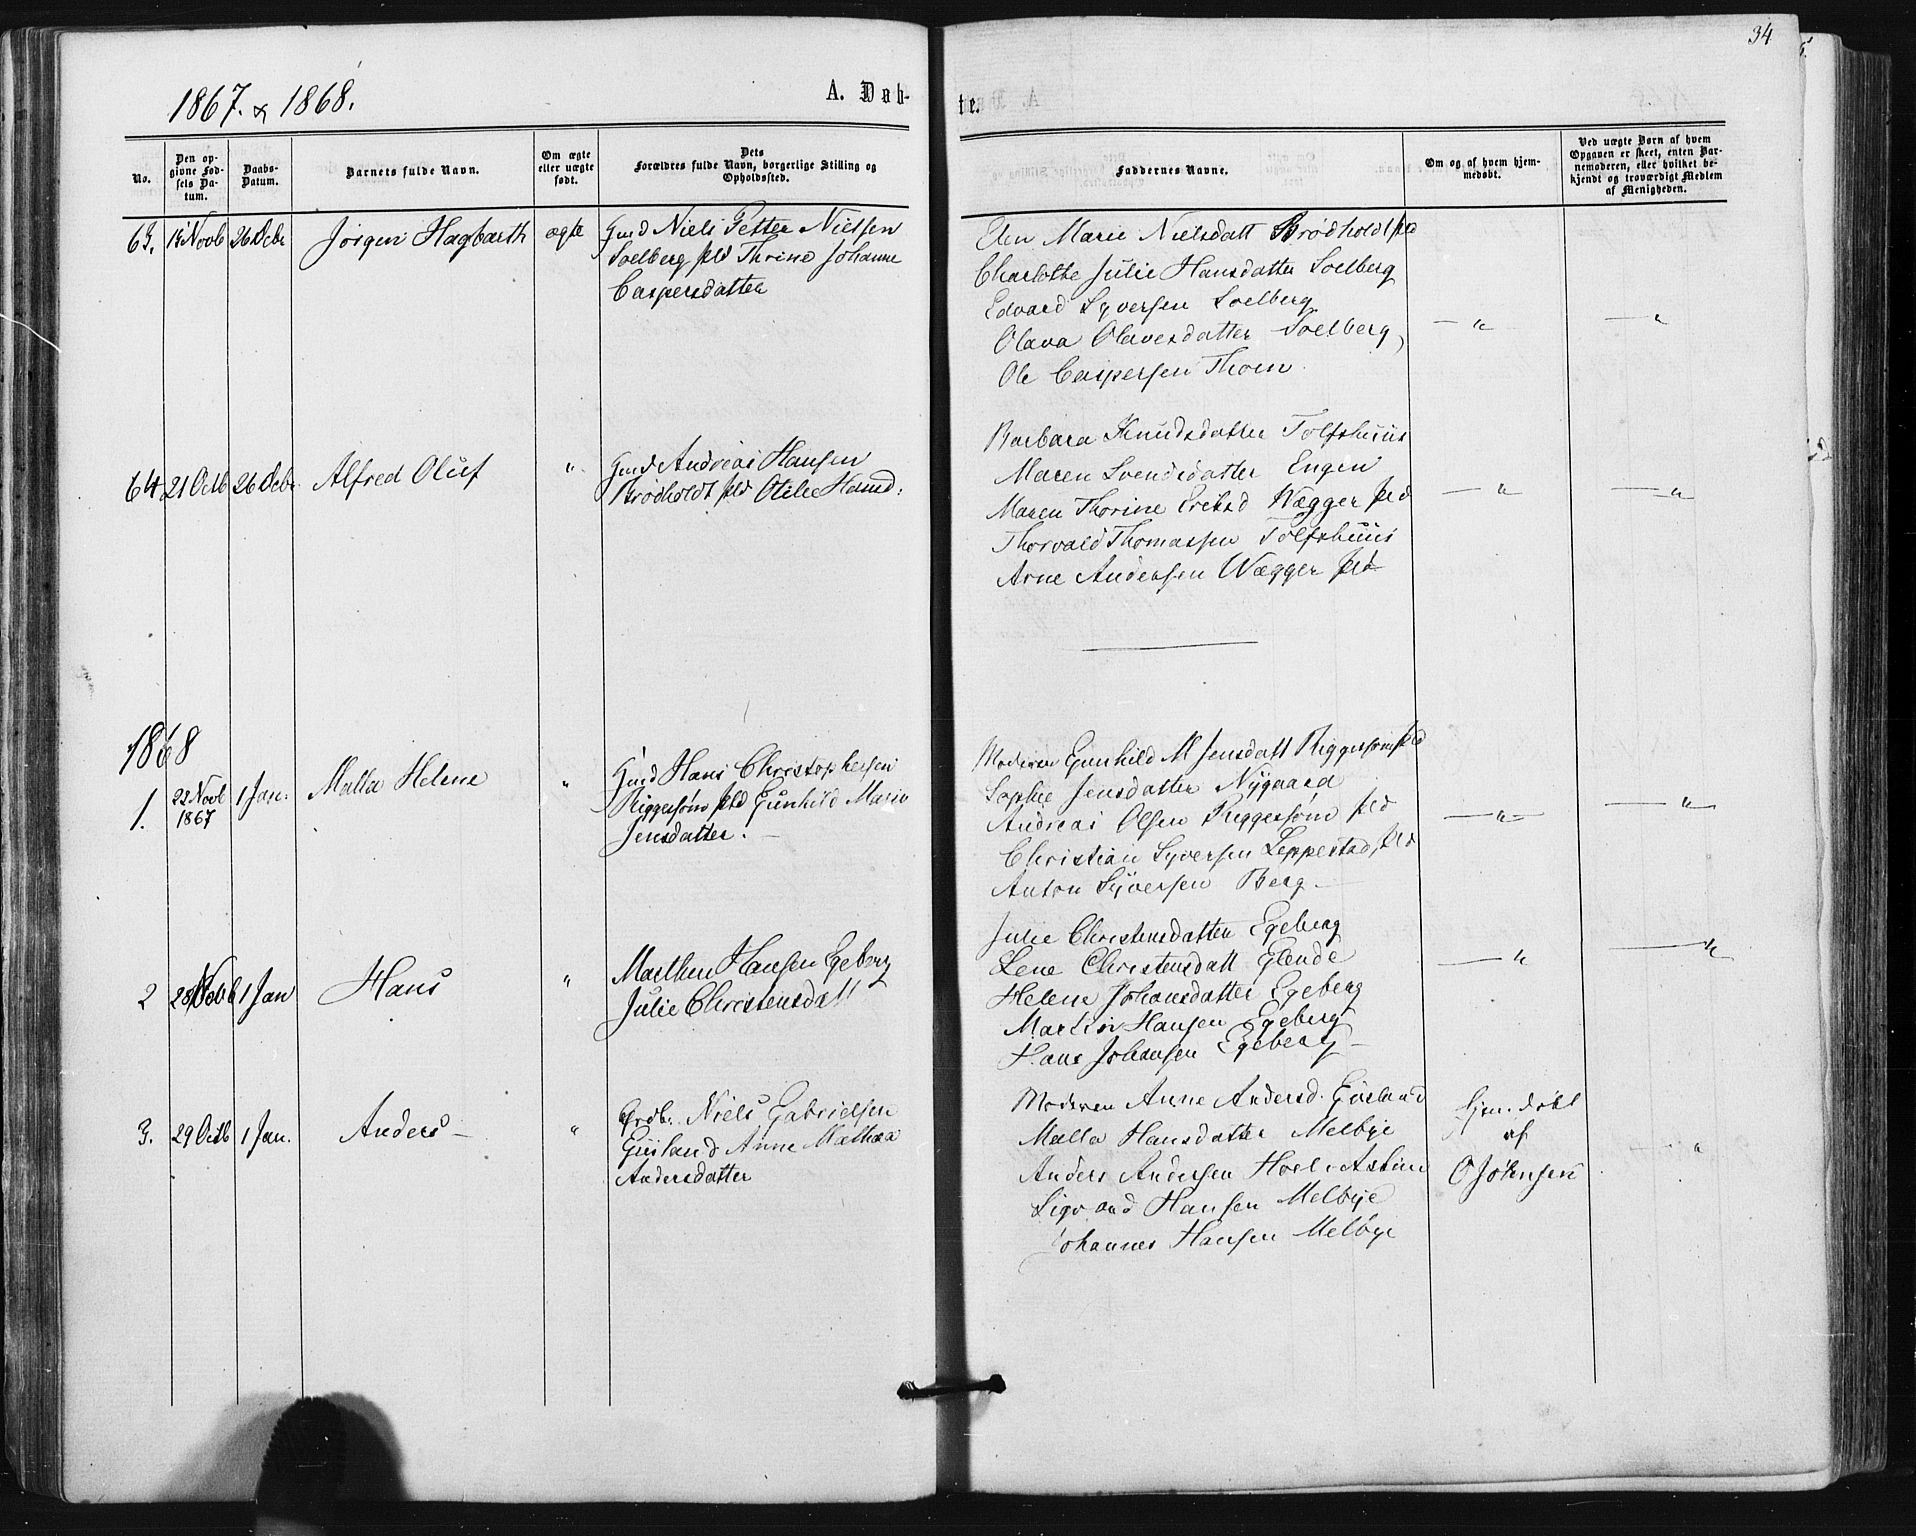 34
1867. & 1868.
A. Døb-
te.
No.
Den op-
givne Fød-
sels Da-
tum.
Daabs-
Datum.
Barnets fulde Navn.
Om ægte
eller uægte
født.
Dets
Forældres fulde Navn, borgerlige Stilling og
Opholdssted.
Faddernes Navne.
Om og af hvem hjem-
medøbt.
Ved uægte Børn af hvem
Opgaven er skeet, enten Bar-
nemoderen, eller hvilket be-
kjendt og troværdigt Medlem
af Menigheden.
63. Novb 26 Dcbr Jørgen Hagbarth ægte
Gmd Niels Petter Nielsen
Soelberg pld Thrine Johanne
Caspersdatter
Elen Marie Nielsdatt Brødholdt pld
Charlotte Julie Hansdatter Soelberg
Edvard Syversen Soelberg
Olava Olavesdatter Soelberg
Ole Caspersen Thoen
— " — "
64. 21 Octb 26 Dcbr. Alfred Oluf "
Gmd Andreas Hansen
Brødholdt pld Otilie Hansd:
Barbara Knudsdatter Tolfshuus
Maren Svendsdatter Engen
Maren Thorine Eriksd Wægger pld
Thorvald Thomassen Tolfshuus
Arne Andersen Wægger pld
— " — "
1868
1. 22 Novb 1867 1 Jan. Malla Helene "
Gmd Hans Christophersen
Riggesøm pld Gunhild Marie
Jensdatter. —
Moderen Gunhild M Jensdatt Riggesøm pld
Sophie Jensdatter Nygaard
Andreas Olsen Riggesøm pld
Christian Syversen Leppestad pld
Anton Syversen Berg —
— " — — "
2 28 Novb 1 Jan Hans "
Marthin Hansen Egeberg
Julie Christensdatt
Julie Christensdatter Egeberg
Lene Christensdatt Glende
Helene Johansdatter Egeberg
Martin Hansen Egeberg
Hans Johansen Egeberg —
— " — "
3. 29 Octb 1 Jan. Anders — "
Grdb. Niels Gabrielsen
Guslund Anne Mathea
Andersdatter
Moderen Anne Andersd. Guslund
Malla Hansdatter Melbye
Anders Andersen Hoel
Sigvard Hansen Melbye
Johannes Hansen Melbye
Hjem. døbt
af
O Johnsen
— "